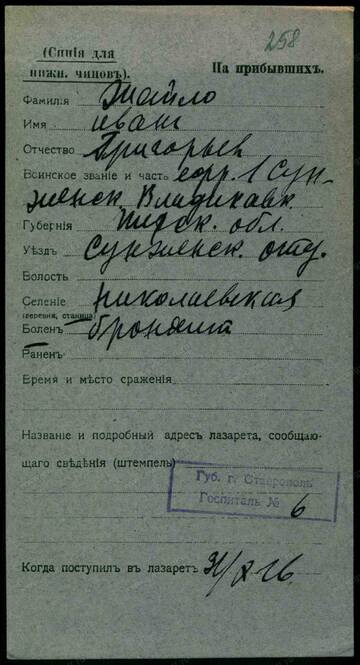 258
(Синія для
нижн. чиновъ).
На прибывшихъ.
Фамилія Жайло
Имя Иванъ
Отчество Григорьев
Воинское званіе и часть ефр. 1 Сун-
женск. Владикавк.
Губернія Терск. обл.
Уѣздъ Сунженск. отд.
Волость
Селеніе Николаевская
(деревня, станица)
Боленъ бронхит
Раненъ
Время и мѣсто сраженія
Названіе и подробный адресъ лазарета, сообщаю-
щаго свѣдѣнія (штемпель)
Губ. г. Ставрополь
Госпиталь № 6
Когда поступилъ въ лазаретъ /X 16.